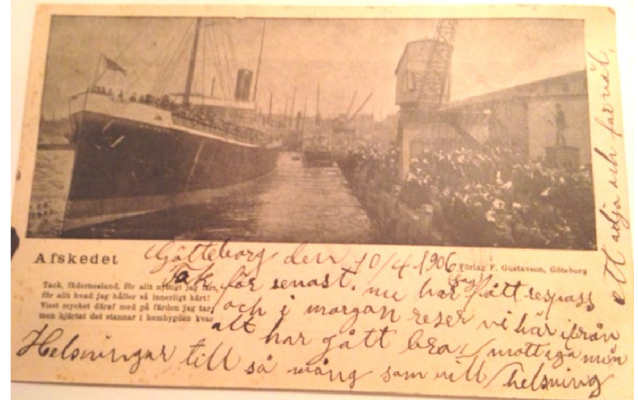 Afskedet
Förlag F. Gustavsson, Göteborg
Tack, fädernesland, för allt
för allt hvad jag håller så innerligt kärt!
Visst mycket däraf med på färden jag tar,
men hjärtat det stannar i hembygden kvar
Götteborg den 10/4 1906
Tak för senast. nu har jag fått respass
och i morgan reser vi här ifrån
alt har gått bra
Helsningar till så mång som vill helsning
ett adjö och farväl